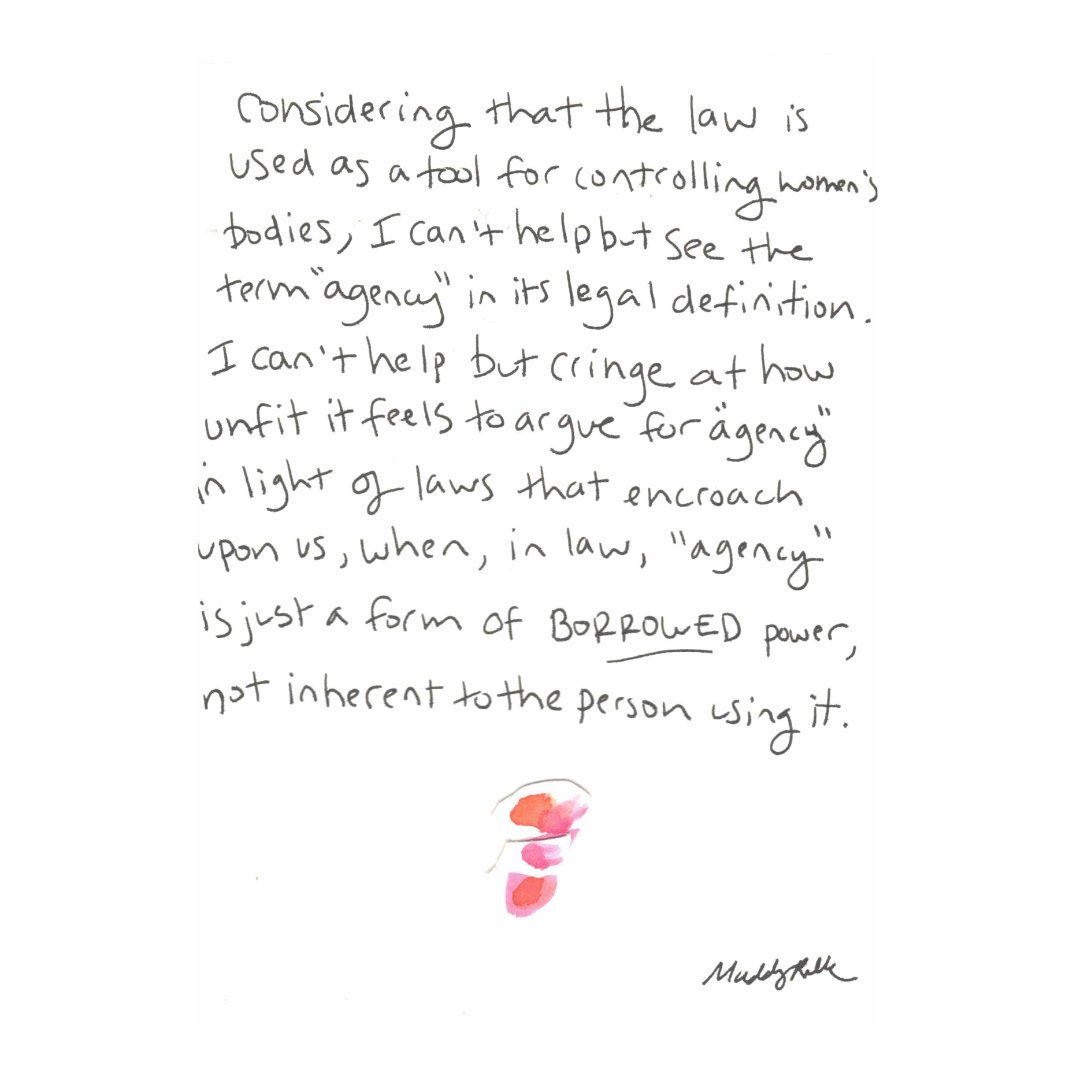 Considering that the law is
used as a tool for controlling women's
bodies, I can't help but see the
term "agency" in its legal definition.
I can't help but cringe at how
unfit it feels to argue for "agency"
in light of laws that encroach
upon us, when, in law, "agency"
is just a form of BORROWED power,
not inherent to the person using it.